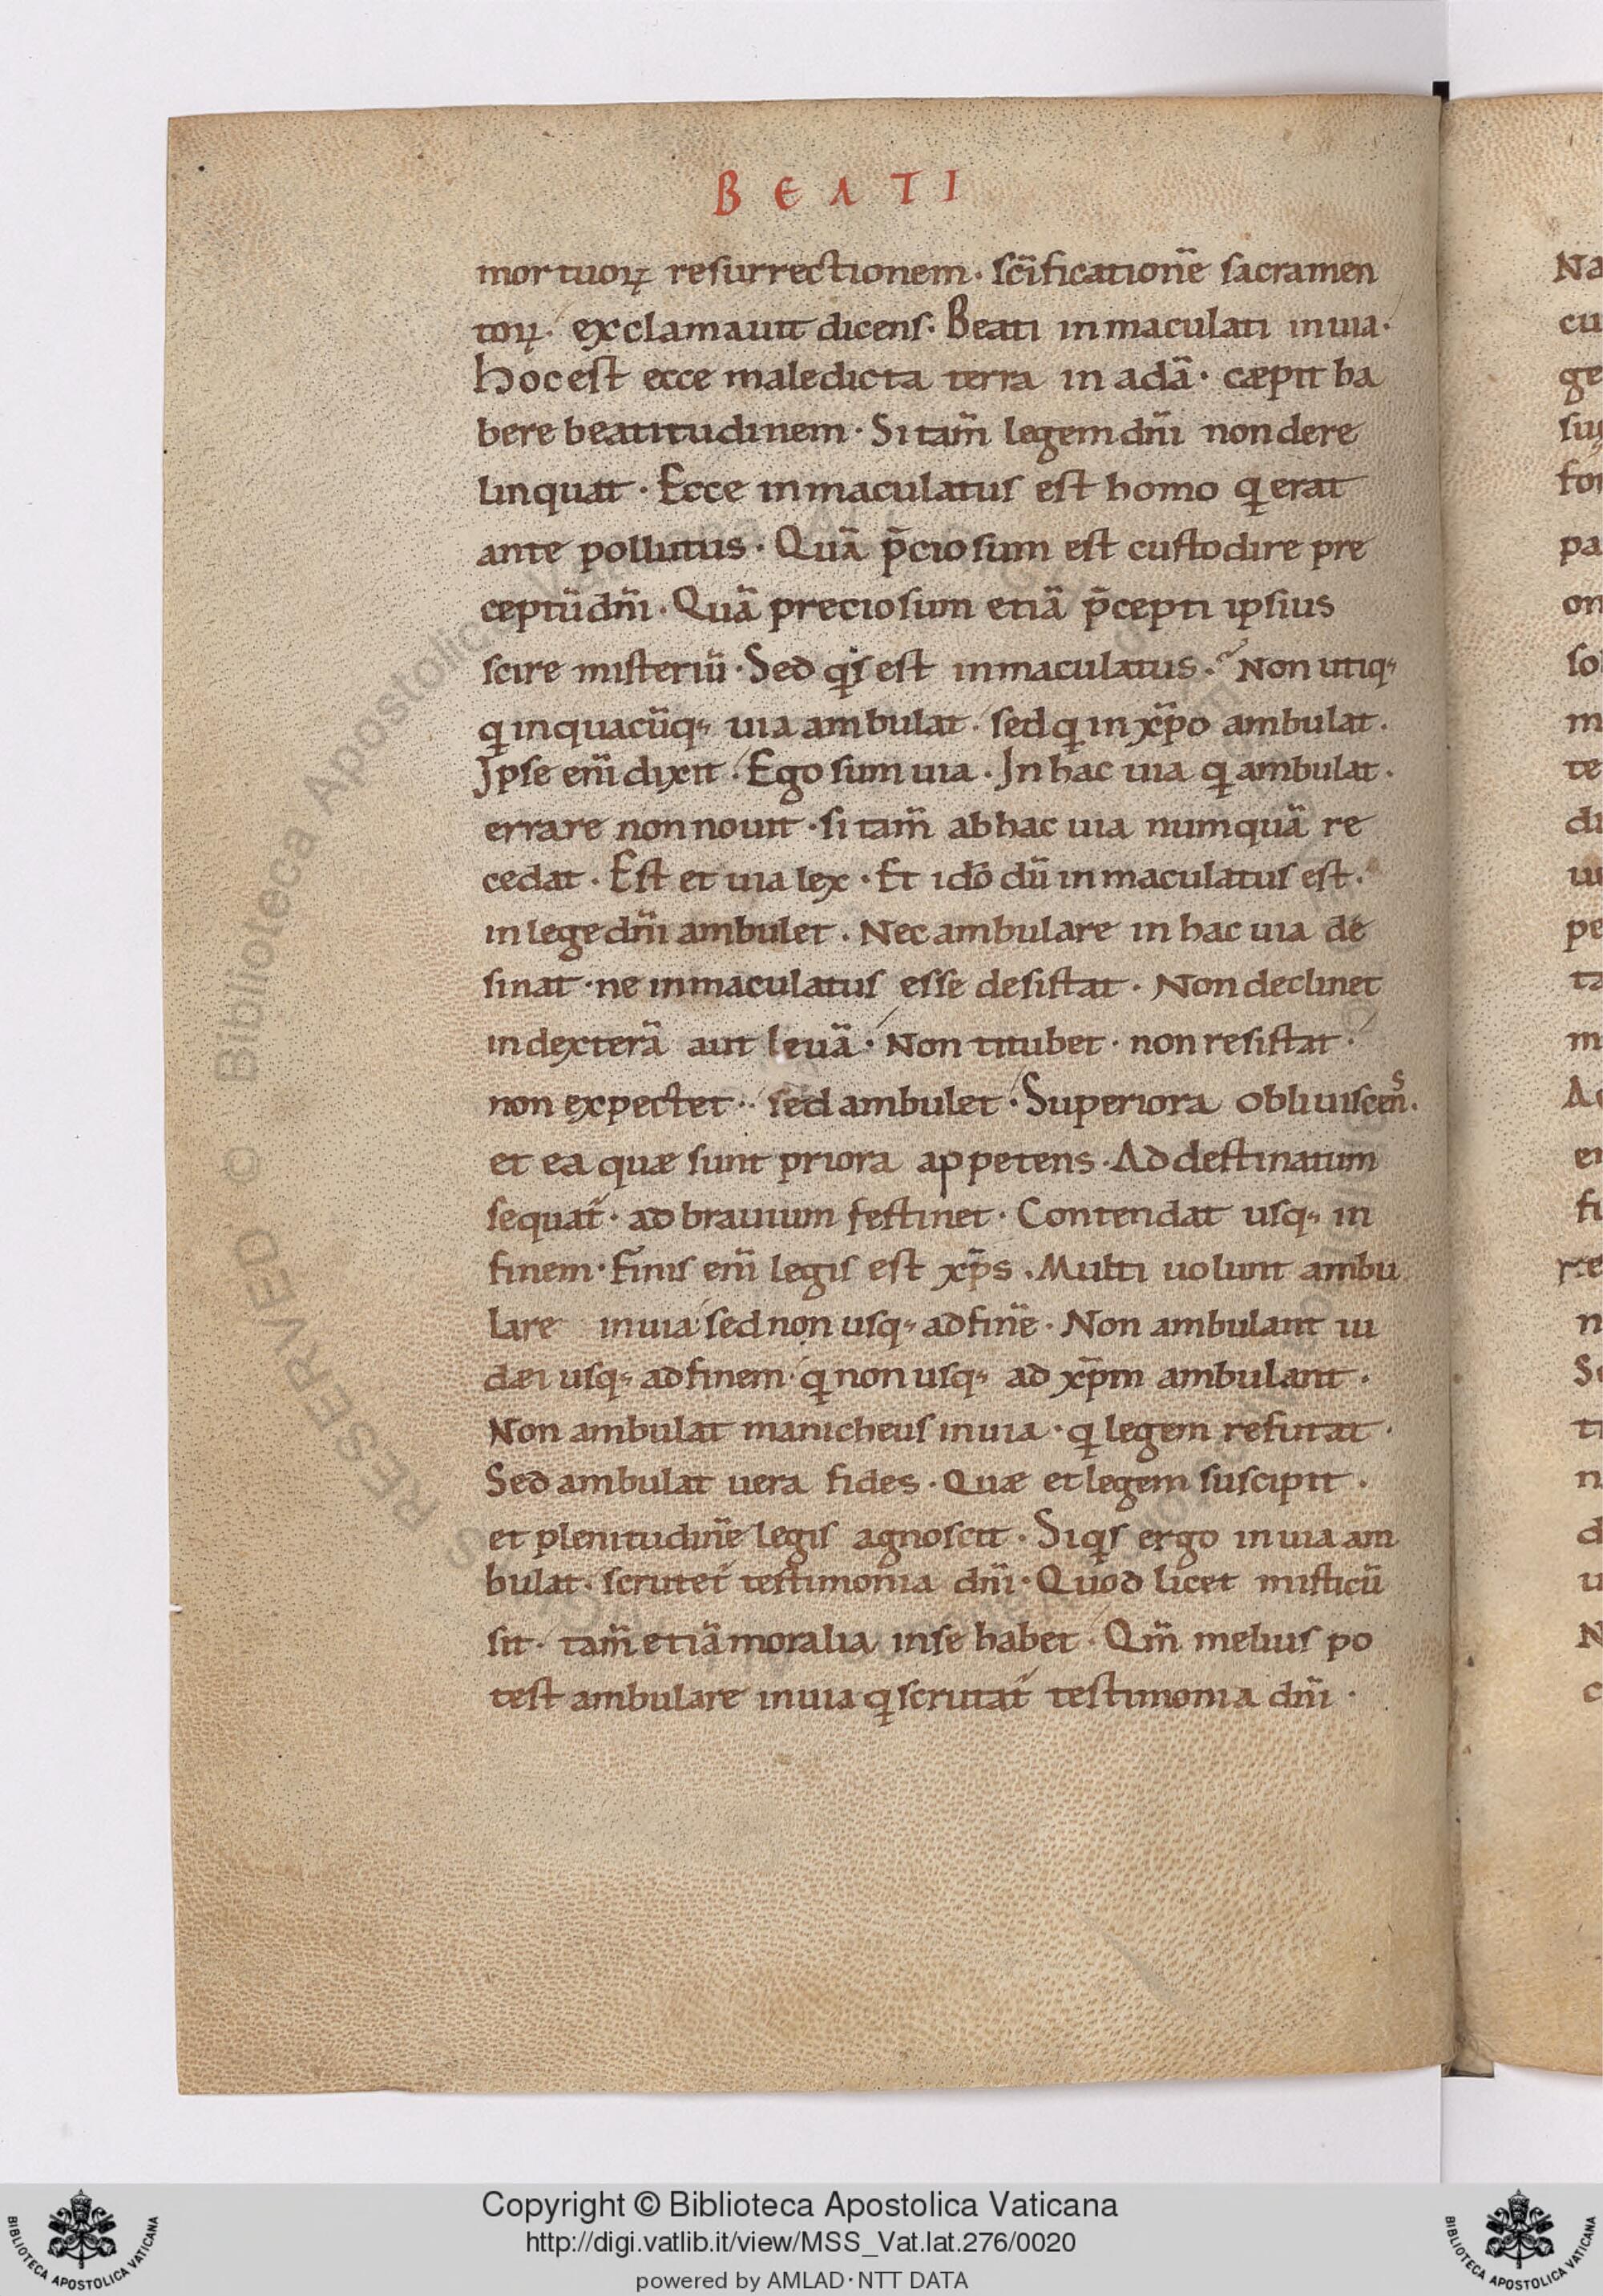 BEATI
mortuoꝝ resurrectionem · sc̄ificationē sacramen
toꝝ · exclamauit dicens · Beati inmaculati in uia ·
Hoc est ecce maledicta terra in adā · cæpit ha
bere beatitudinem · Si tam̄ legem dn̄i non dere
linquat · Ecce inmaculatus est homo q erat
ante pollutus · Quā p̄ciosum est custodire pre
ceptū dn̄i · Quā preciosum etiā p̄cepti ipsius
scire misteriū · Sed qis est inmaculatus · Non utiq;
q in quacūq; uia ambulat · sed q in xp̄o ambulat ·
Ipse eni̅ dixit · Ego sum uia · In hac uia q ambulat ·
errare non nouit · si tam̄ ab hac uia numquā re
cedat · Est et uia lex · Et idō dū inmaculatus est ·
in lege dn̄i ambulet · Nec ambulare in hac uia de
sinat · ne inmaculatus esse desistat · Non declinet
in dexterā aut leuā · Non titubet · non resistat ·
non expectet · sed ambulet · Superiora obliuiscens ·
et ea quæ sunt priora appetens · Ad destinatum
sequat̄ · ad brauium festinet · Contendat usq; in
finem · Finis eni̅ legis est xp̄s · Multi uolunt ambu
lare in uia sed non usq; ad finē · Non ambulant iu
dæi usq; ad finem · q non usq; ad xp̄m ambulant ·
Non ambulat manicheus in uia · q legem refutat ·
Sed ambulat uera fides · Quæ et legem suscipit ·
et plenitudinē legis agnoscit · Si qis ergo in uia am
bulat · scrutet̄ testimonia dn̄i · Quod licet misticū
sit · tam̄ etiā moralia in se habet · Qm̄ melius po
test ambulare in uia q scrutat̄ testimonia dn̄i ·
Na
cu
ge
pa
on
m
te
pe
ta
m
Copyright © Biblioteca Apostolica Vaticana
http://digi.vatlib.it/view/MSS_Vat.lat.276/0020
powered by AMLAD·NTT DATA
BIBLIOTECA APOSTOLICA VATICANA
BIBLIOTECA APOSTOLICA VATICANA